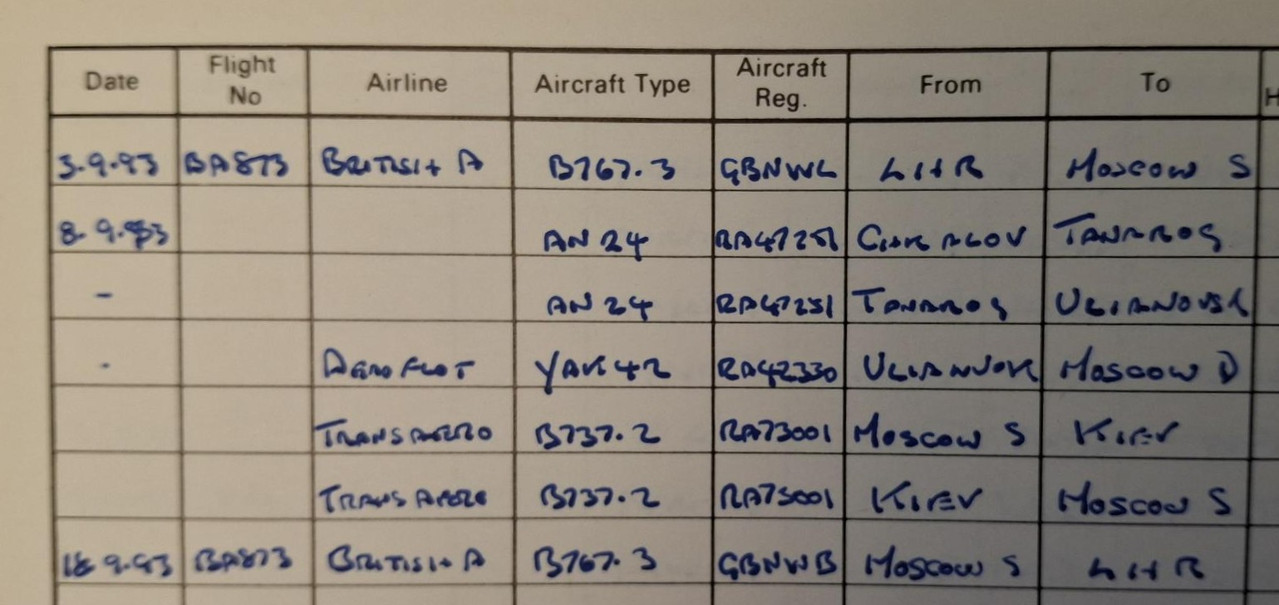 Date Flight No Airline Aircraft Type Aircraft Reg. From To H
3.9.93 BA873 BRITISH A B767.3 GBNWL LHR MOSCOW S
8.9.93 AN 24 RA47251 CHKALOV TANAROG
- AN 24 RA47251 TANAROG ULIANOVSK
- AEROFLOT YAK 42 RA42330 ULIANOVK MOSCOW D
TRANSAERO B737.2 RA73001 MOSCOW S KIEV
TRANSAERO B737.2 RA73001 KIEV MOSCOW S
18.9.93 BA873 BRITISH A B767.3 GBNWB MOSCOW S LHR